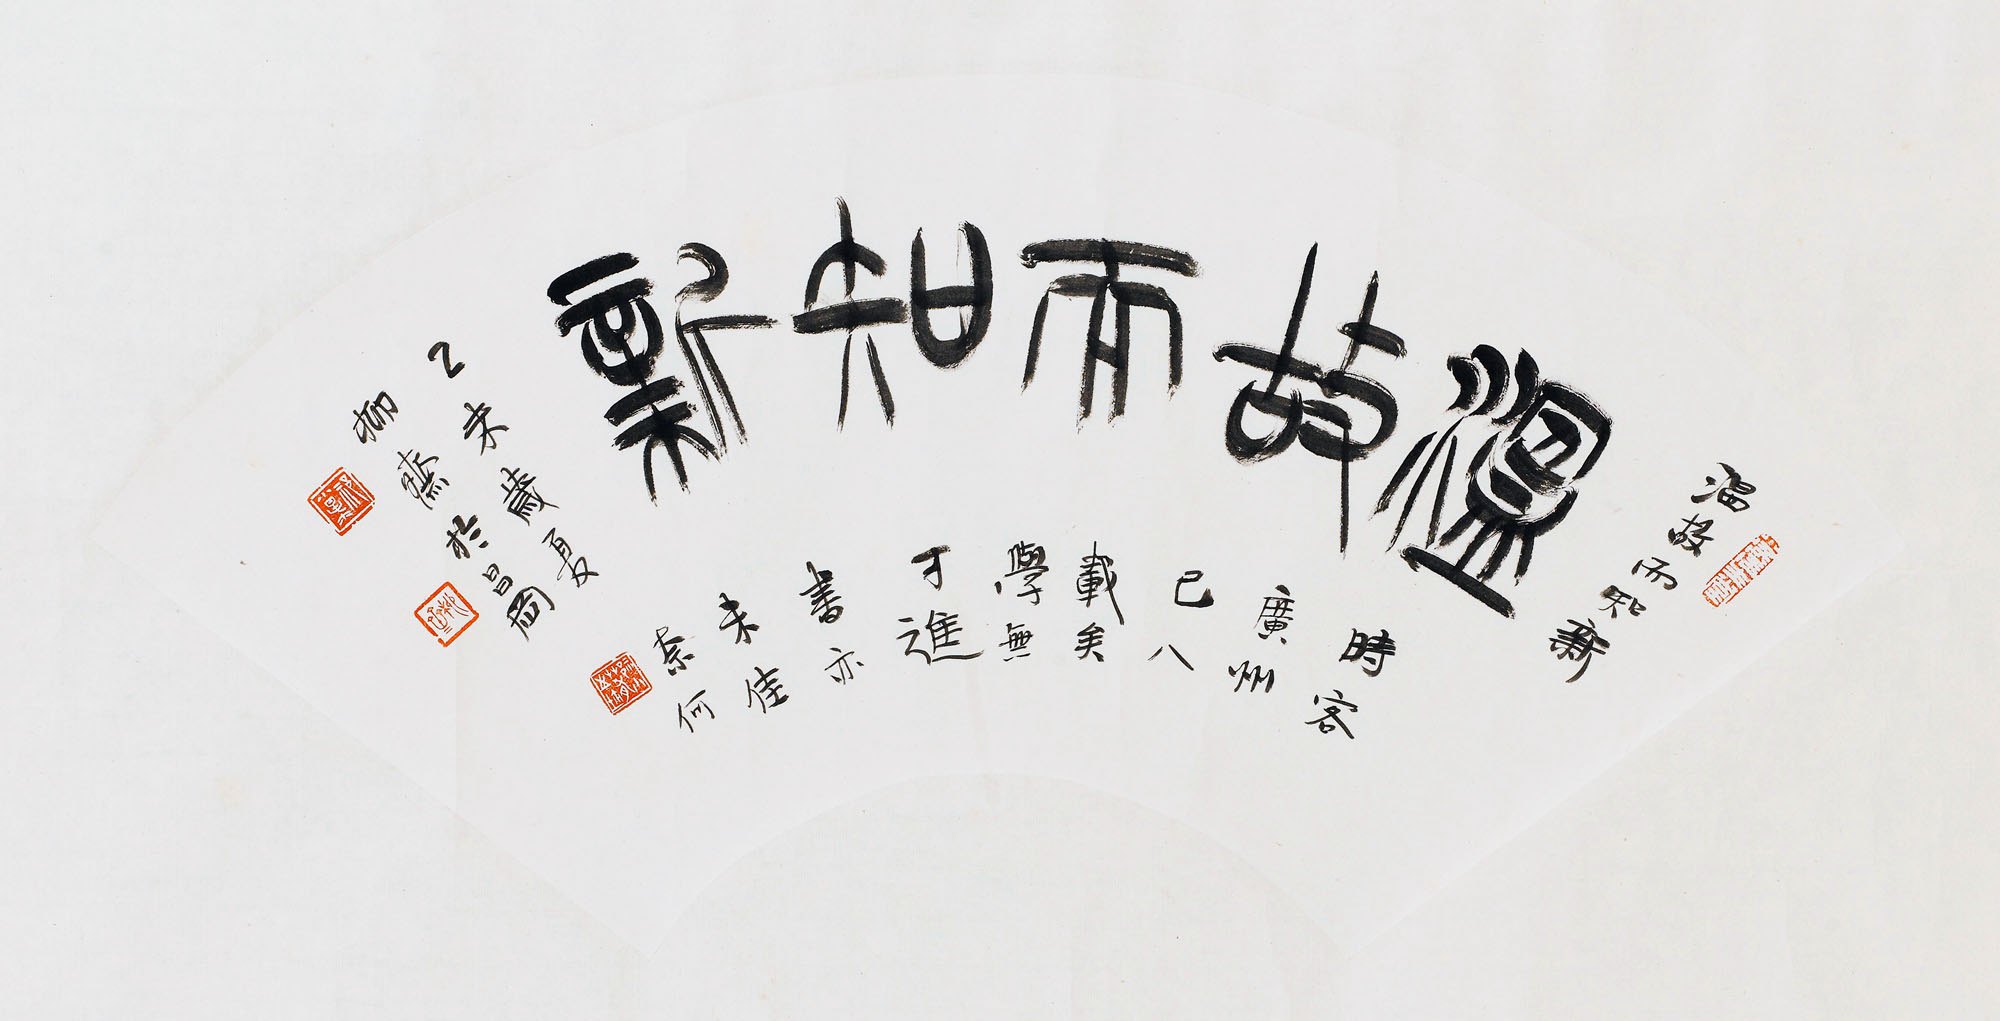 溫故而知新
溫故而知新
時客
廣州
已八
載矣
學無
寸進
書亦
未佳
奈何
乙未歲夏
柳齋於昌岡